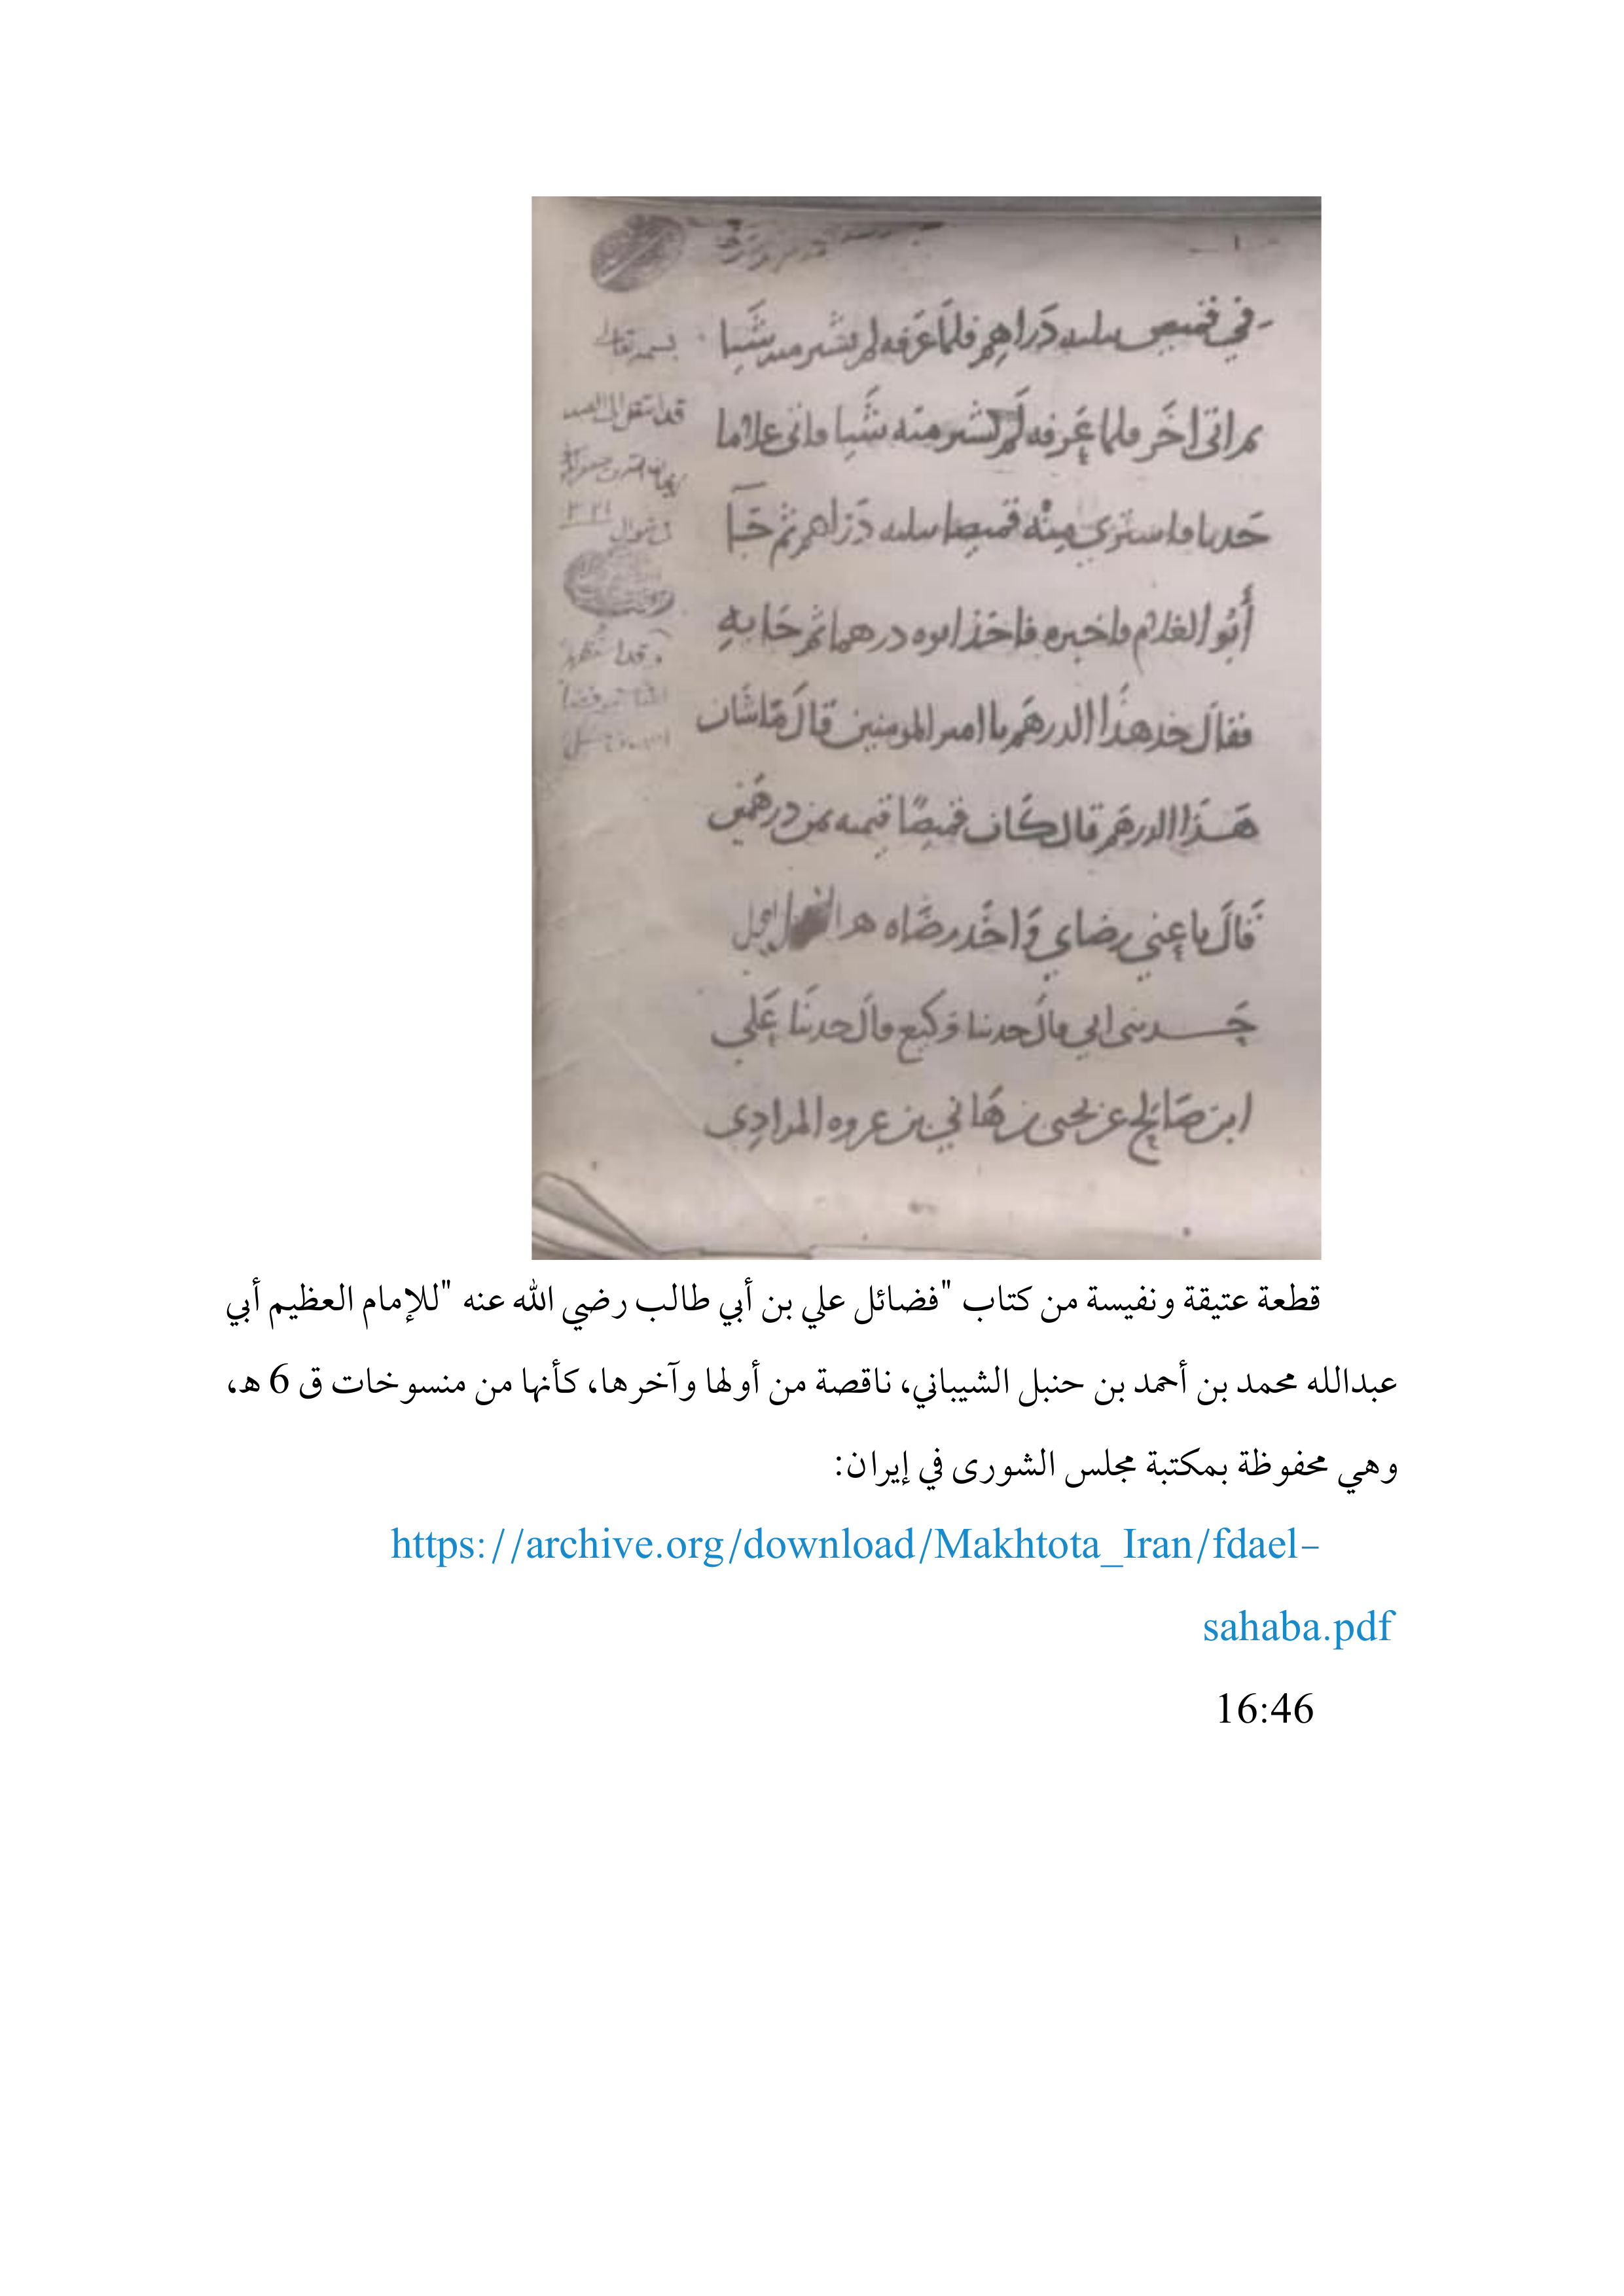 في قميص بثلثه دراهم فلما عرفه لم يشتر منه شيا
ثم اتى اخر فلما عرفه لم يشتر منه شيا فاتى غلاما
حدثا فاشترى منه قميصا بثلثه دراهم ثم جا
أبو الغلام فاخبره فاخذ ابوه درهما ثم جا به
فقال خذ هذا الدرهم يا امير المومنين قال ما شان
هذا الدرهم قال كان قميصا ثمن درهمين
قال باعني رضاي واخذ رضاه
حدثني ابي قال حدثنا وكيع قال حدثنا علي
ابن صالح عن يحيى بن هاني بن عروه المرادي
بسمه تعالى
قد انتقل الى
في شوال
قطعة عتيقة ونفيسة من كتاب "فضائل علي بن أبي طالب رضي الله عنه "للإمام العظيم أبي
عبدالله محمد بن أحمد بن حنبل الشيباني، ناقصة من أولها وآخرها، كأنها من منسوخات ق 6 هـ،
وهي محفوظة بمكتبة مجلس الشورى في إيران:
https://archive.org/download/Makhtota_Iran/fdael-
sahaba.pdf
16:46